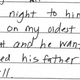 night to him
on my oldest
and he wan
ed his father
ll.